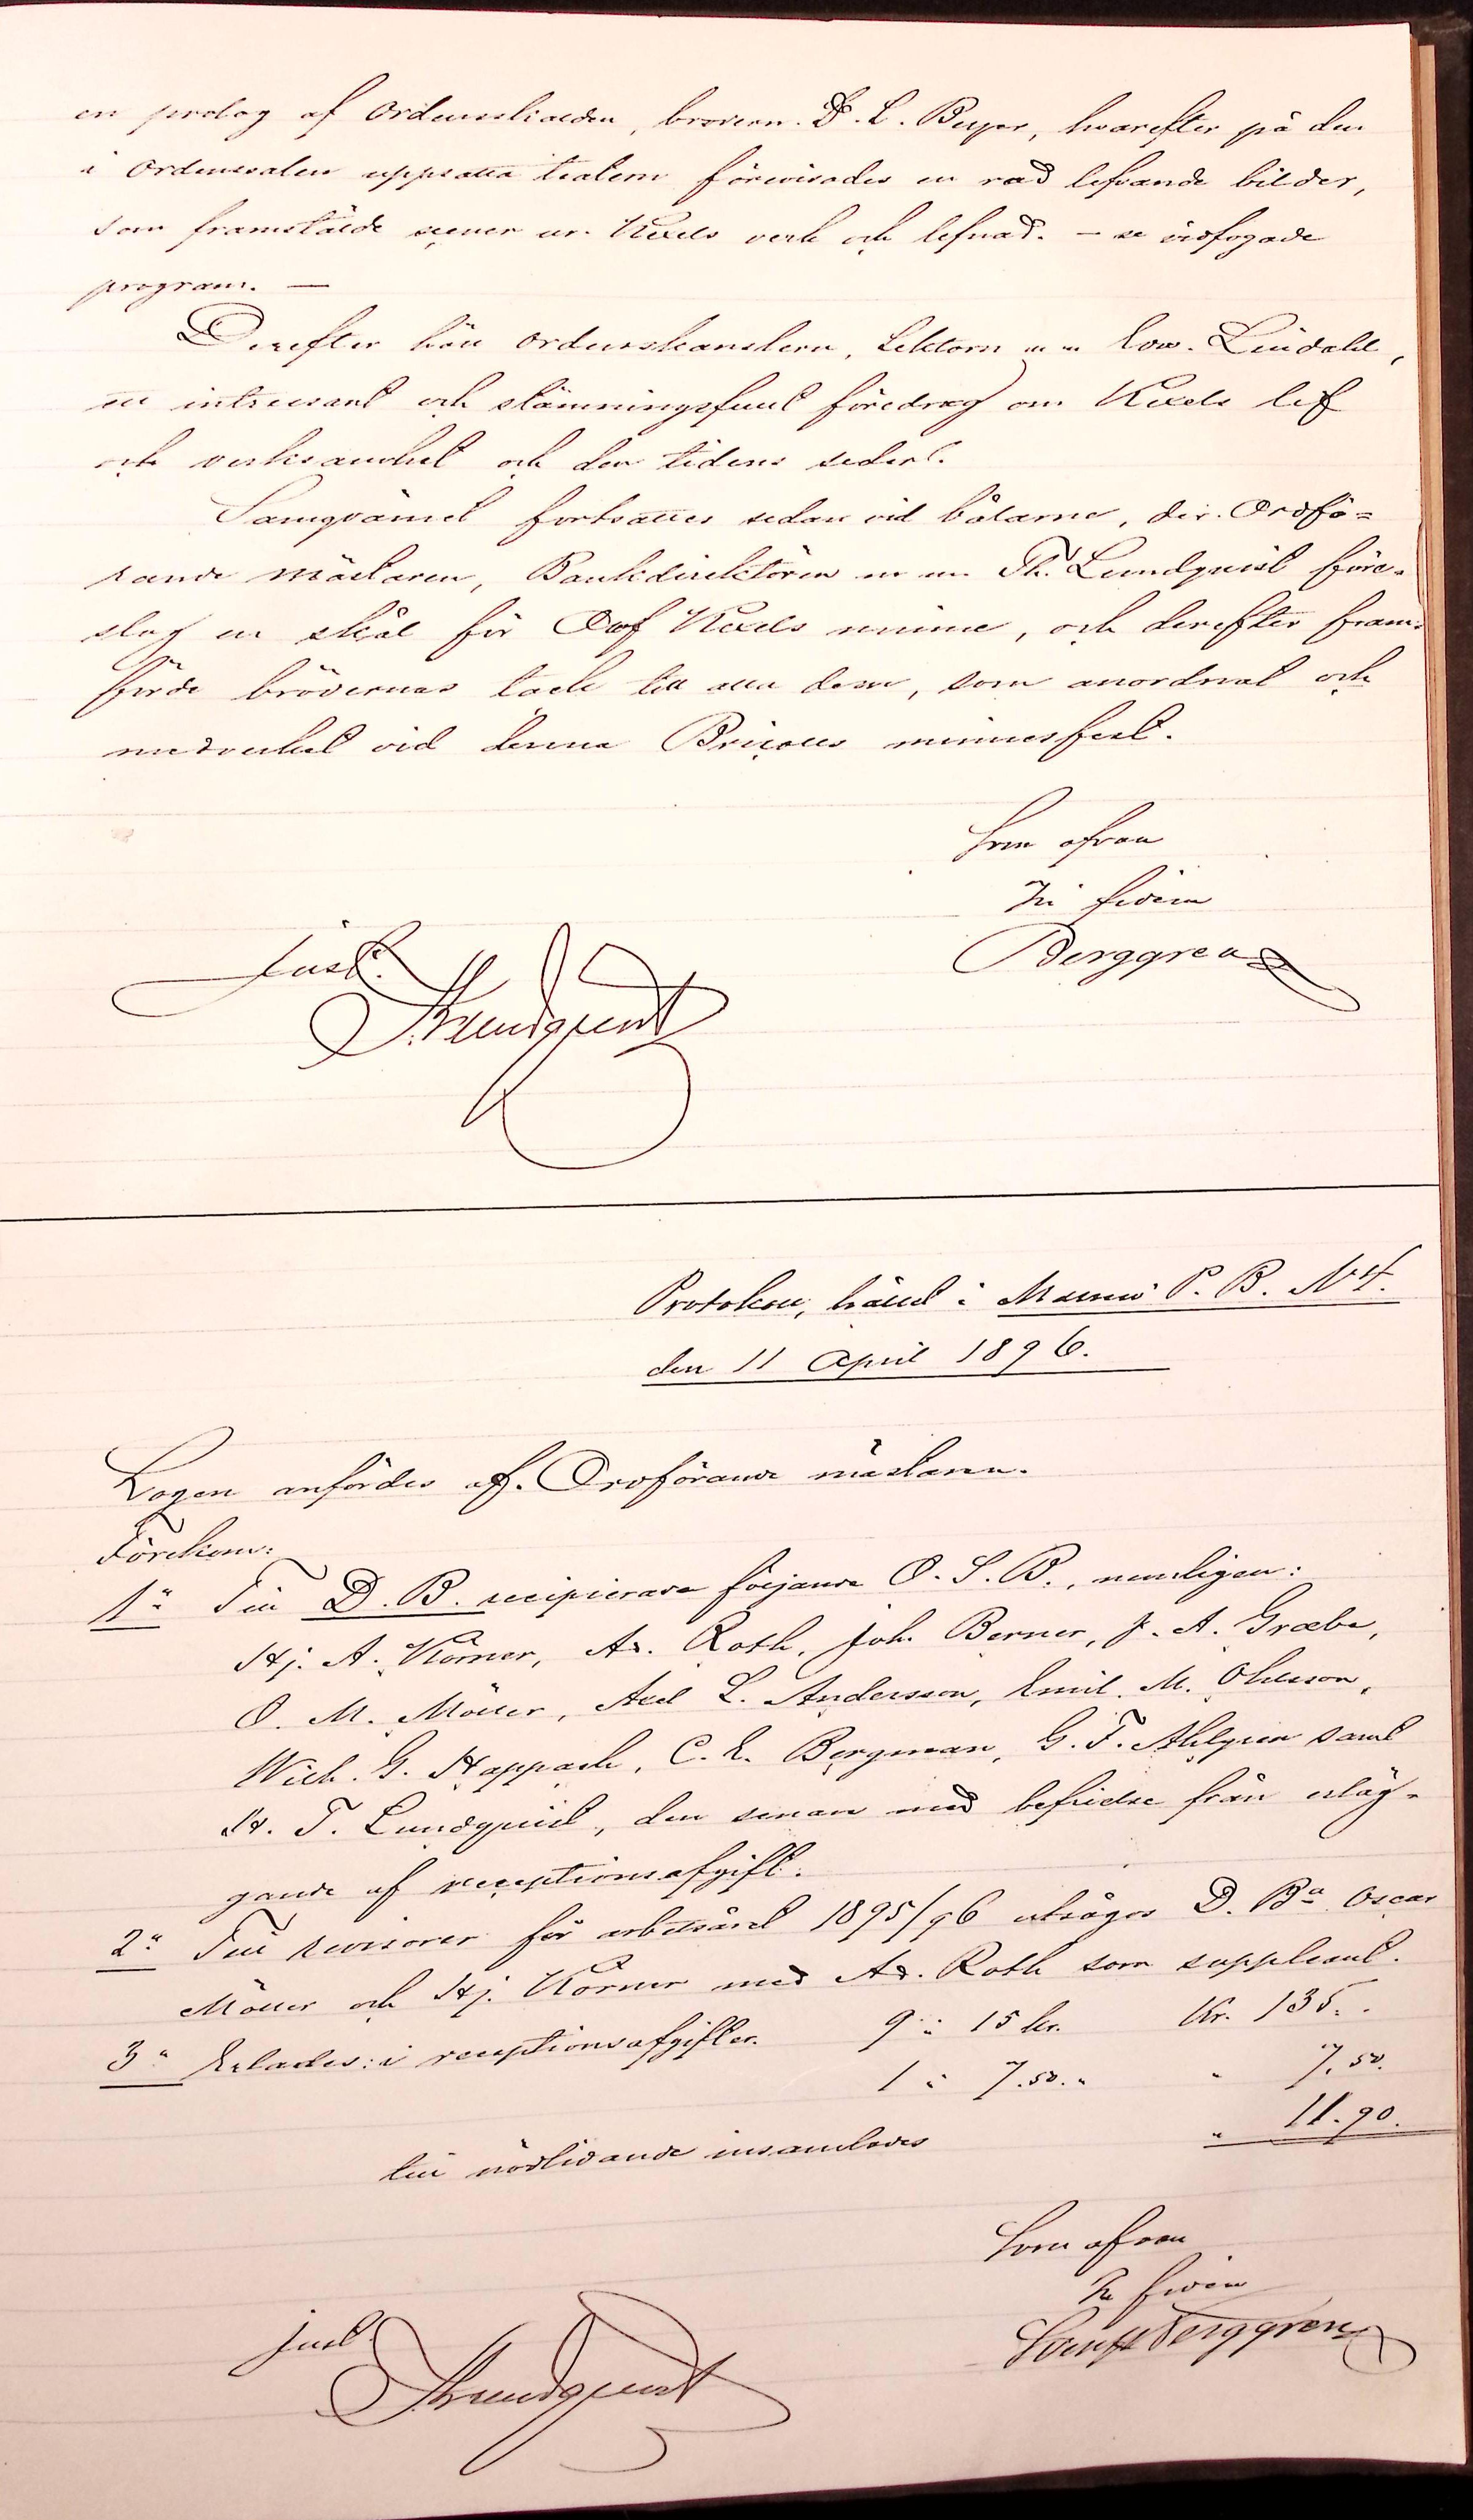 en prolog af Ordensskalden, brodern D. L. Beyer, hvarefter på den
i Ordenssalen uppsatta teatern förevisades en rad lefvande bilder,
som framstälde scener ur Kexels verk och lefnad. – se vidfogade
program. —
Derefter höll Ordenskanslern, Lektorn m m Edw. Lindahl,
ett intressant och stämningsfullt föredrag om Kexels lif
och verksamhet och den tidens seder.
Samqvämet fortsattes sedan vid bålarne, der Ordfö-
rande mästaren, Bankdirektören m m Th. Lundqvist före-
slog en skål för Olof Kexels minne, och derefter fram-
förde brödernas tack till alla dem, som anordnat och
medverkat vid denna Bricoles minnesfest.
Som ofvan
In fidem
Berggren
Just.
Th Lundqvist
Protokoll, hållet i Malmö P. B. N:o 4.
den 11 April 1896.
Logen anfördes af Ordförande mästaren.
Förekom:
1:o Till D. B. recipierade följande O. S. B., nemligen:
Hj. A. Körner, Ad. Roth, Joh. Berner, J. A. Græbe,
O. M. Möller, Axel L. Andersson, Emil M. Ohlsson,
Wilh. G. Happach, C. E. Bergman, G. T. Ahlgren samt
H. T. Lundqvist, den senare med befrielse från erläg-
gande af receptionsafgift.
2:o Till revisorer för arbetsåret 1895/96 utsågos D. B:a Oscar
Möller och Hj. Körner med Ad. Roth som suppleant.
3:o Erlades: i receptionsafgifter 9 à 15 kr. Kr. 135. -
1 à 7.50. " " 7.50.
till nödlidande insamlades " 11.90.
Som ofvan
In fidem
Berggren
just.
Th Lundqvist